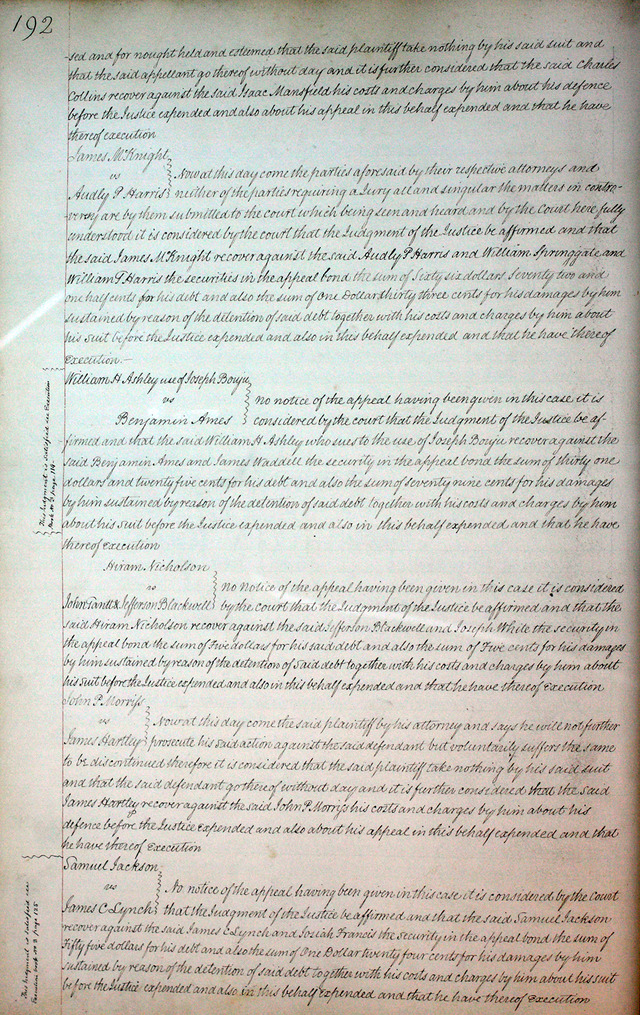 192
-sed and for nought held and esteemed that the said plaintiff take nothing by his said suit and
that the said appellant go thereof without day and it is further considered that the said Charles
Collins recover against the said Isaac Mansfield his costs and charges by him about his defence
before the Justice expended and also about his appeal in this behalf expended and that he have
thereof execution
James McKnight
vs
Now at this day come the parties aforesaid by their respective attorneys and
Audly P Harris neither of the parties requiring a Jury all and singular the matters in contro-
-versy are by them submitted to the court which being seen and heard and by the Court here fully
understood it is considered by the court that the Judgment of the Justice be affirmed and that
the said James McKnight recover against the said Audly P Harris and William Springgate and
William T Harris the securities in the appeal bond the sum of Sixty six dollars Seventy two and
one half cents for his debt and also the sum of One Dollar thirty three cents for his damages by him
sustained by reason of the detention of said debt together with his costs and charges by him about
his suit before the Justice expended and also in this behalf expended and that he have thereof
execution.—
William H Ashley use of Joseph Bouju
vs no notice of the appeal having been given in this case it is
Benjamin Ames considered by the court that the Judgment of the Justice be af-
firmed and that the said William H Ashley who sues to the use of Joseph Bouju recover against the
said Benjamin Ames and James Waddell the security in the appeal bond the sum of thirty one
dollars and twenty five cents for his debt and also the sum of seventy nine cents for his damages
by him sustained by reason of the detention of said debt together with his costs and charges by him
about his suit before the Justice expended and also in this behalf expended and that he have
thereof execution
This Judgment is satisfied see Execution
Book No 3 page
Hiram Nicholson
vs no notice of the appeal having been given in this case it is considered
John & Jefferson Blackwell by the court that the Judgment of the Justice be affirmed and that the
said Hiram Nicholson recover against the said Jefferson Blackwell and Joseph White the security in
the appeal bond the sum of Five dollars for his said debt and also the sum of Five cents for his damages
by him sustained by reason of the detention of said debt together with his costs and charges by him about
his suit before the Justice expended and also in this behalf expended and that he have thereof execution
John P. Morriss
vs Now at this day come the said plaintiff by his attorney and says he will not further
James Hartley prosecute his said action against the said defendant but voluntarily suffers the same
to be discontinued therefore it is considered that the said plaintiff take nothing by his said suit
and that the said defendant go thereof without day and it is further considered that the said
James Hartley recover against the said John P Morriss his costs and charges by him about his
defence before the Justice expended and also about his appeal in this behalf expended and that
he have thereof execution
Samuel Jackson
vs No notice of the appeal having been given in this case it is considered by the Court
James C Lynch that the Judgment of the Justice be affirmed and that the said Samuel Jackson
recover against the said James C Lynch and Josiah Francis the security in the appeal bond the sum of
Fifty five dollars for his debt and also the sum of One Dollar twenty four cents for his damages by him
sustained by reason of the detention of said debt together with his costs and charges by him about his suit
before the Justice expended and also in this behalf expended and that he have thereof execution
This Judgment is satisfied see
Execution book No 3 page 125